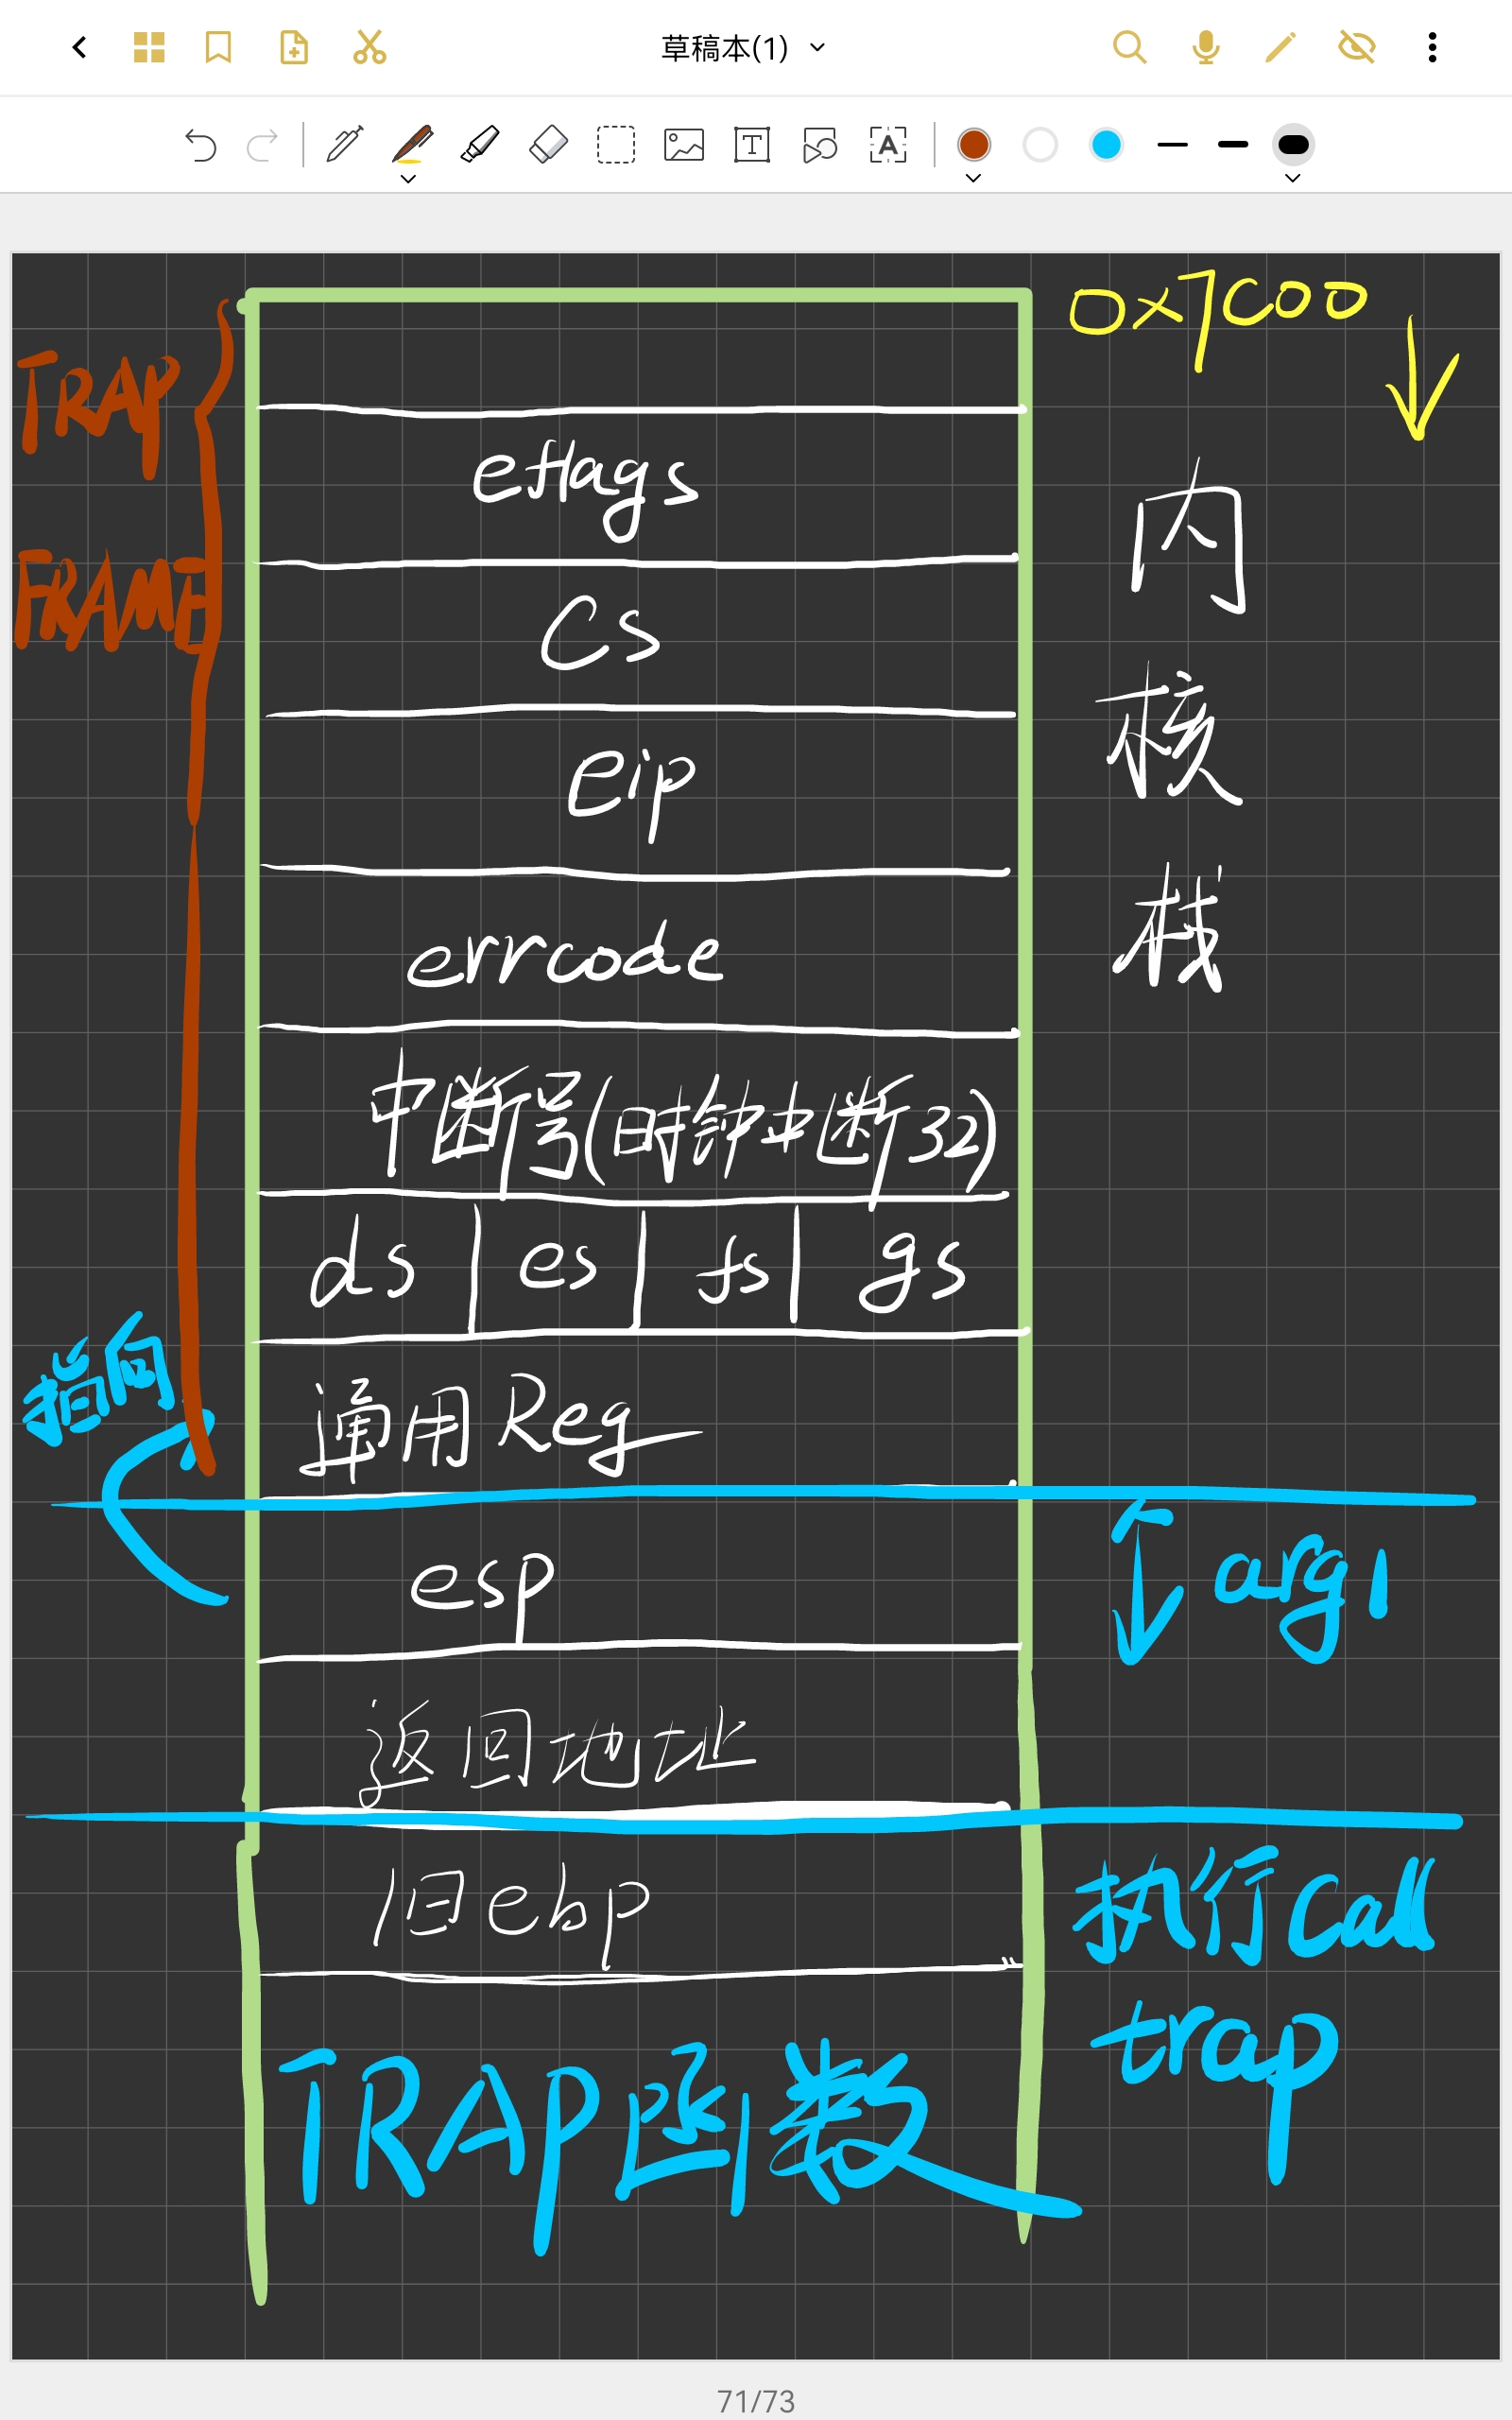 草稿本(1)
T
A
0x7C00
TRAP
FRAME
eflags
Cs
eip
errcode
内
核
栈
中断号(时钟中断32)
ds es fs gs
指向
通用Reg
esp
arg1
返回地址
旧ebp
执行Call
trap
TRAP函数
71/73